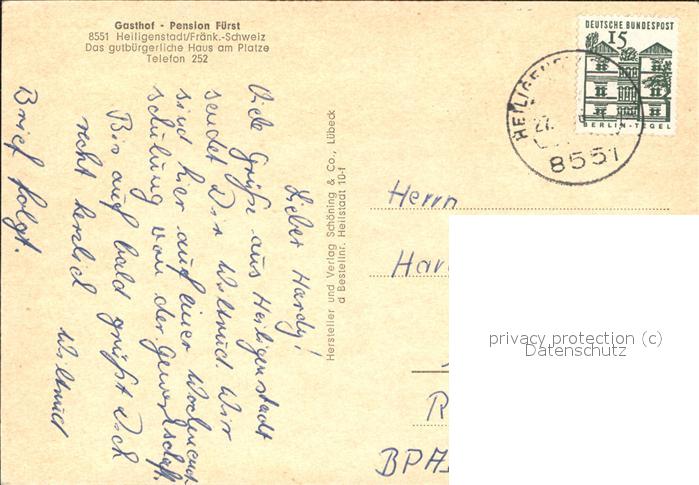 Gasthof - Pension Fürst
8551 Heiligenstadt/Fränk.-Schweiz
Das gutbürgerliche Haus am Platze
Telefon 252
Lieber Hardy!
Viele Grüße aus Heiligenstadt
sendet Dir Wiltrud. Wir
sind hier auf einer Wochenend
schulung von der Gewerkschaft.
Bis auf bald grüßt Dich
recht herzlich Wiltrud
Brief folgt.
Hersteller und Verlag Schöning & Co., Lübeck
d Bestellnr. Heilstadt 10-f
DEUTSCHE BUNDESPOST
15
BERLIN-TEGEL
27.
8551
Herrn
Har
R
BPA
privacy protection (c)
Datenschutz